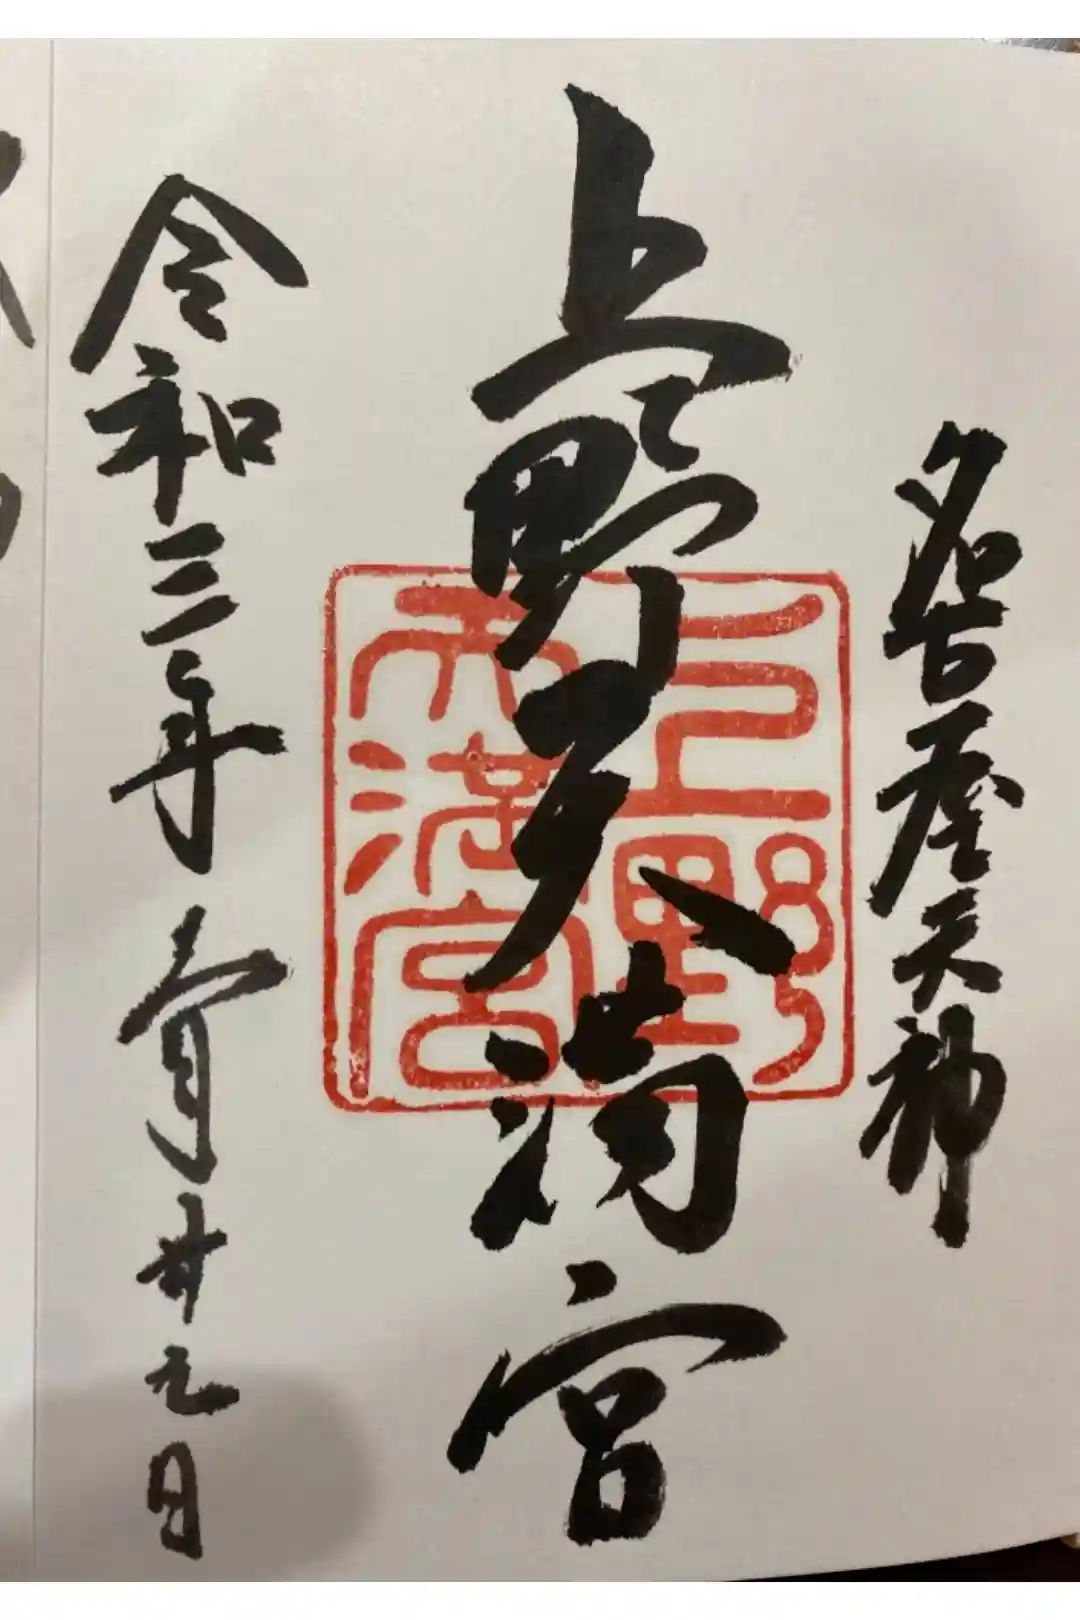 名古屋天神
上野天満宮
上野
天満宮
令和三年 月廿 日